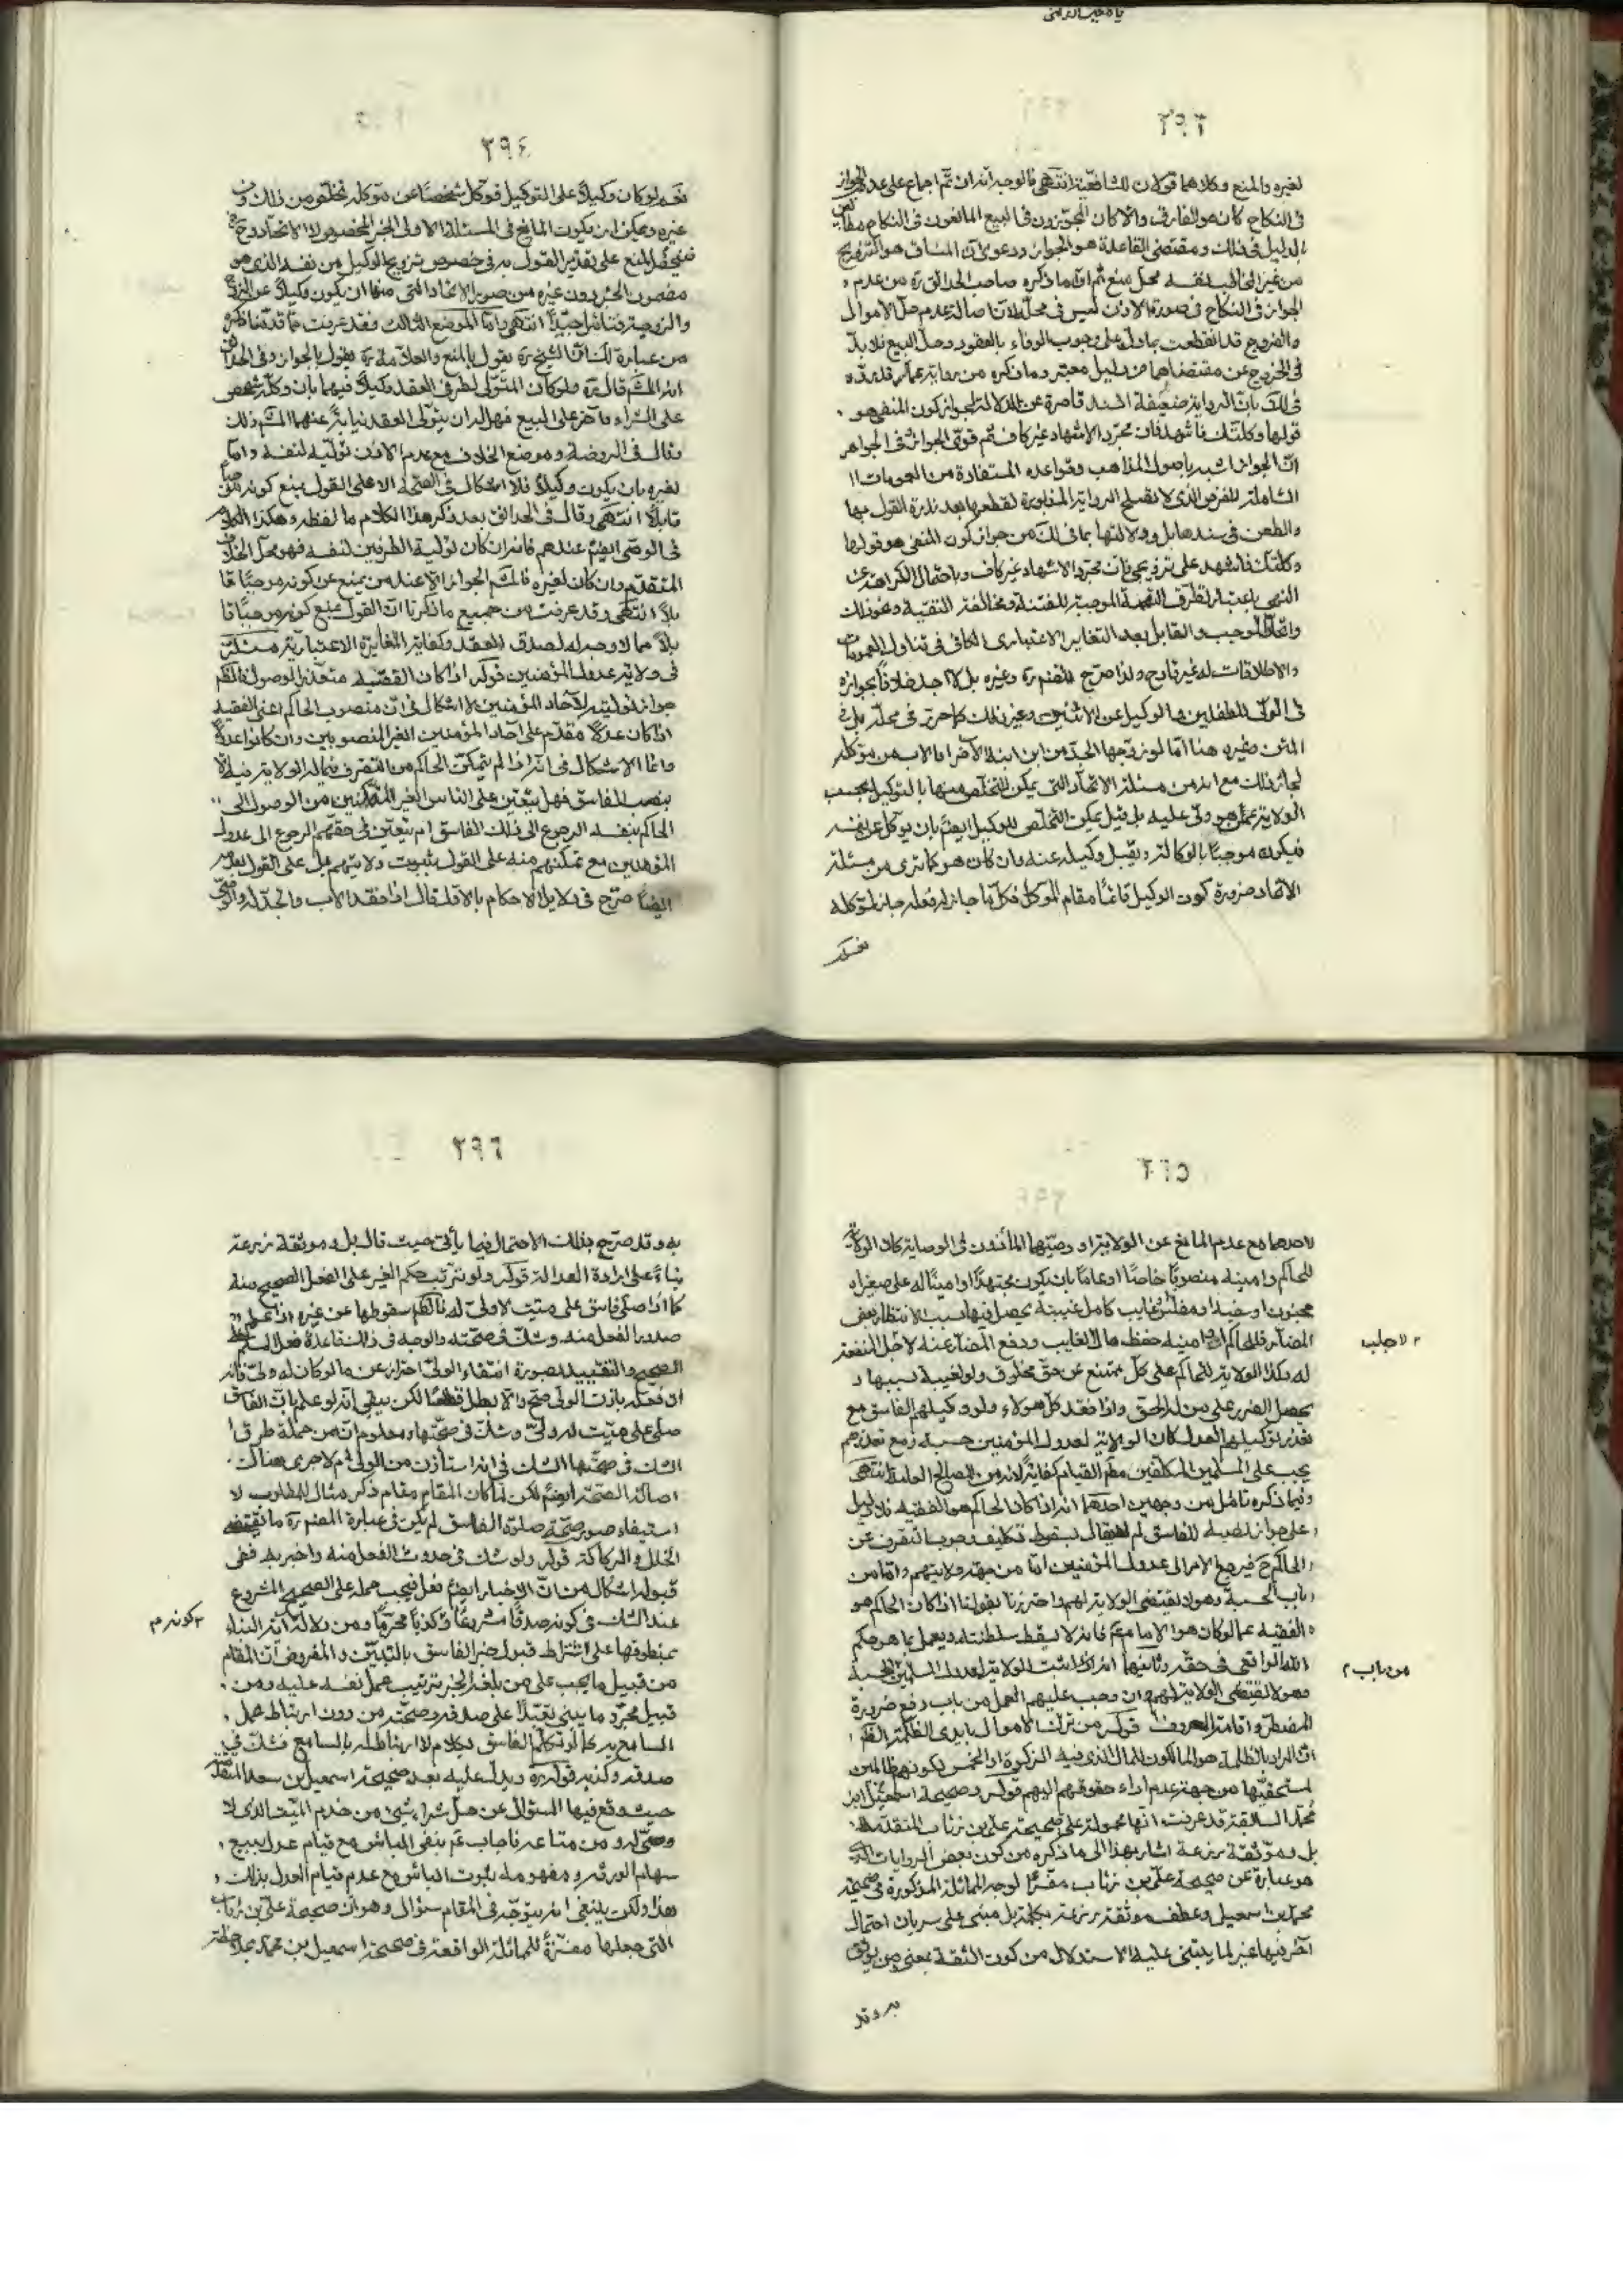 ٣٩٣
لغيره والمنع وكلاهما قولان للشافعية انتهى فالوجه انه ان تم اجماع على عدم الجواز
في النكاح كان هو الفارق والا كان المجوزون في البيع المانعون في النكاح
الدليل في ذلك ومقتضى القاعدة هو الجواز ودعوى ان المنساق هو التزويج
من غير المخاطب لنفسه محل منع ثم ان ما ذكره صاحب الحدائق ره من عدم
الجواز في النكاح في صورة الاذن ليس في محله لان اصالة عدم حل الاموال
والفروج قد انقطعت بما دل على وجوب الوفاء بالعقود وحل البيع فلا بد
في الخروج عن مقتضاهما من دليل معتبر وما ذكره من رواية عمار قد رده
في لك بان الرواية ضعيفة السند قاصرة عن الدلالة لجواز كون المنفى هو
قولها وكلتك فاشهد فان مجرد الاشهاد غير كاف ثم قوى الجواز في الجواهر
ان الجواز اشبه باصول المذاهب وقواعده المستفادة من العمومات
الشاملة للفرض الذي لا تصلح الرواية المذبورة لقطعها بعد ندرة القول بها
والطعن في سندها بل ودلالتها بما في لك من جواز كون المنفى هو قولها
وكلتك فاشهد على تزويجي فان مجرد الاشهاد غير كاف وباحتمال الكراهة
النهى باعتبار تطرق التهمة الموجبة للفتنة ومخالفة التقية ونحو ذلك
واتحاد الموجب والقابل بعد التغاير الاعتباري الكافي في تناول العمومات
والاطلاقات له غير قادح ولذا صرح المصنف ره وغيره بل لا اجد خلافا بجوازه
في الولى للطفلين والوكيل عن الاثنين وغير ذلك كما حرر في محله بل في
المتن وغيره هنا اما لو زوجها الجد من ابن ابنه الاخر او الاب من موكله
لجاز ذلك مع انه من مسئلة الاتحاد التي يمكن التخلص منها بالتوكيل
الولاية عمن هو ولى عليه بل قيل يمكن التخلص للوكيل ايضا بان يوكل عن نفسه
فيكون موجبا بالوكالة ويقبل وكيله عنه وان كان هو كما ترى من مسئلة
الاتحاد ضرورة كون الوكيل قائما مقام الموكل فكل ما جاز له فعله جاز لموكله
٣٩٤
نعم لو كان وكيلا على التوكيل فوكل شخصا عن موكله تخلص من ذلك
غيره ويمكن ان يكون المانع في المسئلة الاولى الخبر المخصوص لا الاتحاد وح
فيختص المنع على تقدير القول به في خصوص تزويج الوكيل من نفسه الذي هو
مضمون الخبر دون غيره من صور الاتحاد التي منها ان يكون وكيلا عن الزوج
والزوجة فتامل جيدا انتهى واما الموضع الثالث فقد عرفت مما قدمنا ذكره
من عبارة لك ان الشيخ ره يقول بالمنع والعلامة ره يقول بالجواز وفي الحدائق
انه المشهور قال ره ولو كان المتولى لطرفي العقد وكيلا فيهما بان وكله شخص
على الشراء واخر على البيع فهل له ان يتولى العقد نيابة عنهما المشهور ذلك
وقال في الروضة وموضع الخلاف مع عدم الاذن توليه لنفسه واما
لغيره بان يكون وكيلا فلا اشكال في الصحة الا على القول بمنع كونه موجبا
قابلا انتهى وقال في الحدائق بعد ذكر هذا الكلام ما لفظه وهكذا الكلام
في الوصى ايضا عندهم فانه ان كان تولية الطرفين لنفسه فهو محل الخلاف
المتقدم وان كان لغيره فالمشهور الجواز الا عند من يمنع عن كونه موجبا قا
بلا انتهى وقد عرفت من جميع ما ذكرنا ان القول بمنع كونه موجبا قا
بلا مما لا وجه له لصدق العقد وكفاية المغايرة الاعتبارية مسئلة
في ولاية عدول المؤمنين قوله اذا كان الفقيه متعذر الوصول فالظاهر
جواز توليته لاحاد المؤمنين لا اشكال في ان منصوب الحاكم اعنى الفقيه
اذا كان عدلا مقدم على احاد المؤمنين الغير المنصوبين وان كانوا عدولا
وانما الاشكال في انه اذا لم يتمكن الحاكم من التصرف فيما له الولاية فيه الا
بنصب الفاسق فهل يتعين على الناس الغير المتمكنين من الوصول الى
الحاكم بنفسه الرجوع الى ذلك الفاسق ام يتعين في حقهم الرجوع الى عدول
المؤمنين مع تمكنهم منه على القول بثبوت ولايتهم بل على القول بعدمه
ايضا صرح في دلايل الاحكام بالاول قال اذا فقد الاب والجد له والوصى
٣٩٥
لاحدهما مع عدم المانع عن الولاية او وصيهما المأذون في الوصاية كان الولاية
للحاكم وامينه منصوبا خاصا او عاما بان يكون مجتهدا او امينا له على صغير او
مجنون او سفيه او مفلس وغايب كامل غيبته يحصل فيها بسبب الانتظار بعض
الضرر فللحاكم او امينه حفظ مال الغايب ودفع المضار عنه لاجل المنفعة
له وكذا الولاية للحاكم على كل ممتنع عن حق مخلوق ولو لغيبة بسببها
يحصل الضرر على من له الحق واذا فقد كل هؤلاء ولو وكيلهم الفاسق مع
تعذر توكيلهم العدل كان الولاية لعدول المؤمنين حسبة ومع تعذرهم
يجب على المسلمين المكلفين القيام كفاية لانه من المصالح العامة انتهى
وفيما ذكره تامل من وجهين احدهما انه اذا كان الحاكم هو الفقيه فلا دليل
على جواز نصبه للفاسق لم لا يقال بسقوط تكليف وجوب التصرف عن
الحاكم ح فيرجع الامر الى عدول المؤمنين اما من جهة ولايتهم واما من
باب الحسبة وهو لا يقتضى الولاية لهم واحترزنا بقولنا اذا كان الحاكم هو
الفقيه عما لو كان هو الامام فانه لا يسقط سلطنته ويعمل بما هو حكم
الله الواقعي في حقه وثانيهما انه اذا اثبت الولاية لعدول المسلمين الحسبة
وهو لا يقتضى الولاية لهم وان وجب عليهم العمل من باب دفع ضرورة
المضطر واقامة المعروف قوله من ترك الاموال بايدى الظلمة الظاهر
ان المراد بالظلمة هو المالكون للمال الذي فيه الزكوة او الخمس لكونهم ظالمين
لمستحقيها من جهة عدم اداء حقوقهم اليهم قوله وصحيحة اسمعيل ابن
محمد السابقة قد عرفت انها محمولة على صحيحة على بن رئاب المتقدمة
بل وموثقة زرعة اشار بهذا الى ما ذكره من كون بعض الروايات
هو عبارة عن صحيحة على بن رئاب مفسرا لوجه المماثلة المذكورة في صحيحة
محمد بن اسمعيل وعطف موثقة زرعة بكلمة بل مبنى على سريان احتمال
اخر فيها غير ما يبتنى عليه الاستدلال من كون الثقة بمعنى من يوثق
به وقد
٢ لاجلب
من باب م
٣٩٦
به وقد صرح بذلك الاحتمال فيما يأتي حيث قال بل وموثقة زرعة
بناء على ارادة العدالة قوله ولو ترتب حكم الغير على الفعل الصحيح منه
كما اذا صلى فاسق على ميت لا ولى له فالظاهر سقوطها عن غيره اذا علم
صدور الفعل منه وشك في صحته والوجه في ذلك قاعدة فعل المسلم
الصحيح والتقييد بصورة انتفاء الولى احتراز عن ما لو كان له ولى فانه
ان فعله باذن الولى صح والا بطل قطعا لكن يبقى انه لو علم بان الفاسق
صلى على ميت له ولى وشك في صحتها ومعلوم ان من جملة طرق
الشك في صحتها الشك في انه استأذن من الولى ام لا جرى هناك
اصالة الصحة ايضا لكن لما كان المقام مقام ذكر مثال للمطلوب لا
استيفاء صور صحة صلوة الفاسق لم يكن في عبارة المصنف ره ما يقتضى
الخلل والركاكة قوله ولو شك في حدوث الفعل منه واخبر به ففي
قبوله اشكال من ان الاخبار ايضا فعل فيجب حمله على الصحيح المشروع
عند الشك في كونه صدقا مشروعا وكذبا محرما ومن دلالة اية النباء
بمنطوقها على اشتراط قبول خبر الفاسق بالتبين والمفروض ان المقام
من قبيل ما يجب على من بلغه الخبر ترتيب عمل نفسه عليه ومن
قبيل مجرد ما يبنى تعبدا على صدقه وصحته من دون ارتباط عمل
السامع به كما لو تكلم الفاسق بكلام لا ارتباط له بالسامع فشك في
صدقه وكذبه قوله ره ويدل عليه بعد صحيحة اسمعيل بن سعد المتقدمة
حيث وقع فيها السؤال عن حل شراء شئ من خدم الميت الذي لا
وصى له ومن متاعه فاجاب ع بنفى الباس مع قيام عدل ببيع
سهام الورثة ومفهومه ثبوت الباس مع عدم قيام العدل بذلك
هذا ولكن ينبغى انه يتوجه في المقام سؤال وهو ان صحيحة على بن رئاب
التي جعلها مفسرة للمماثلة الواقعة في صحيحة اسمعيل بن محمد
٣ كونه م